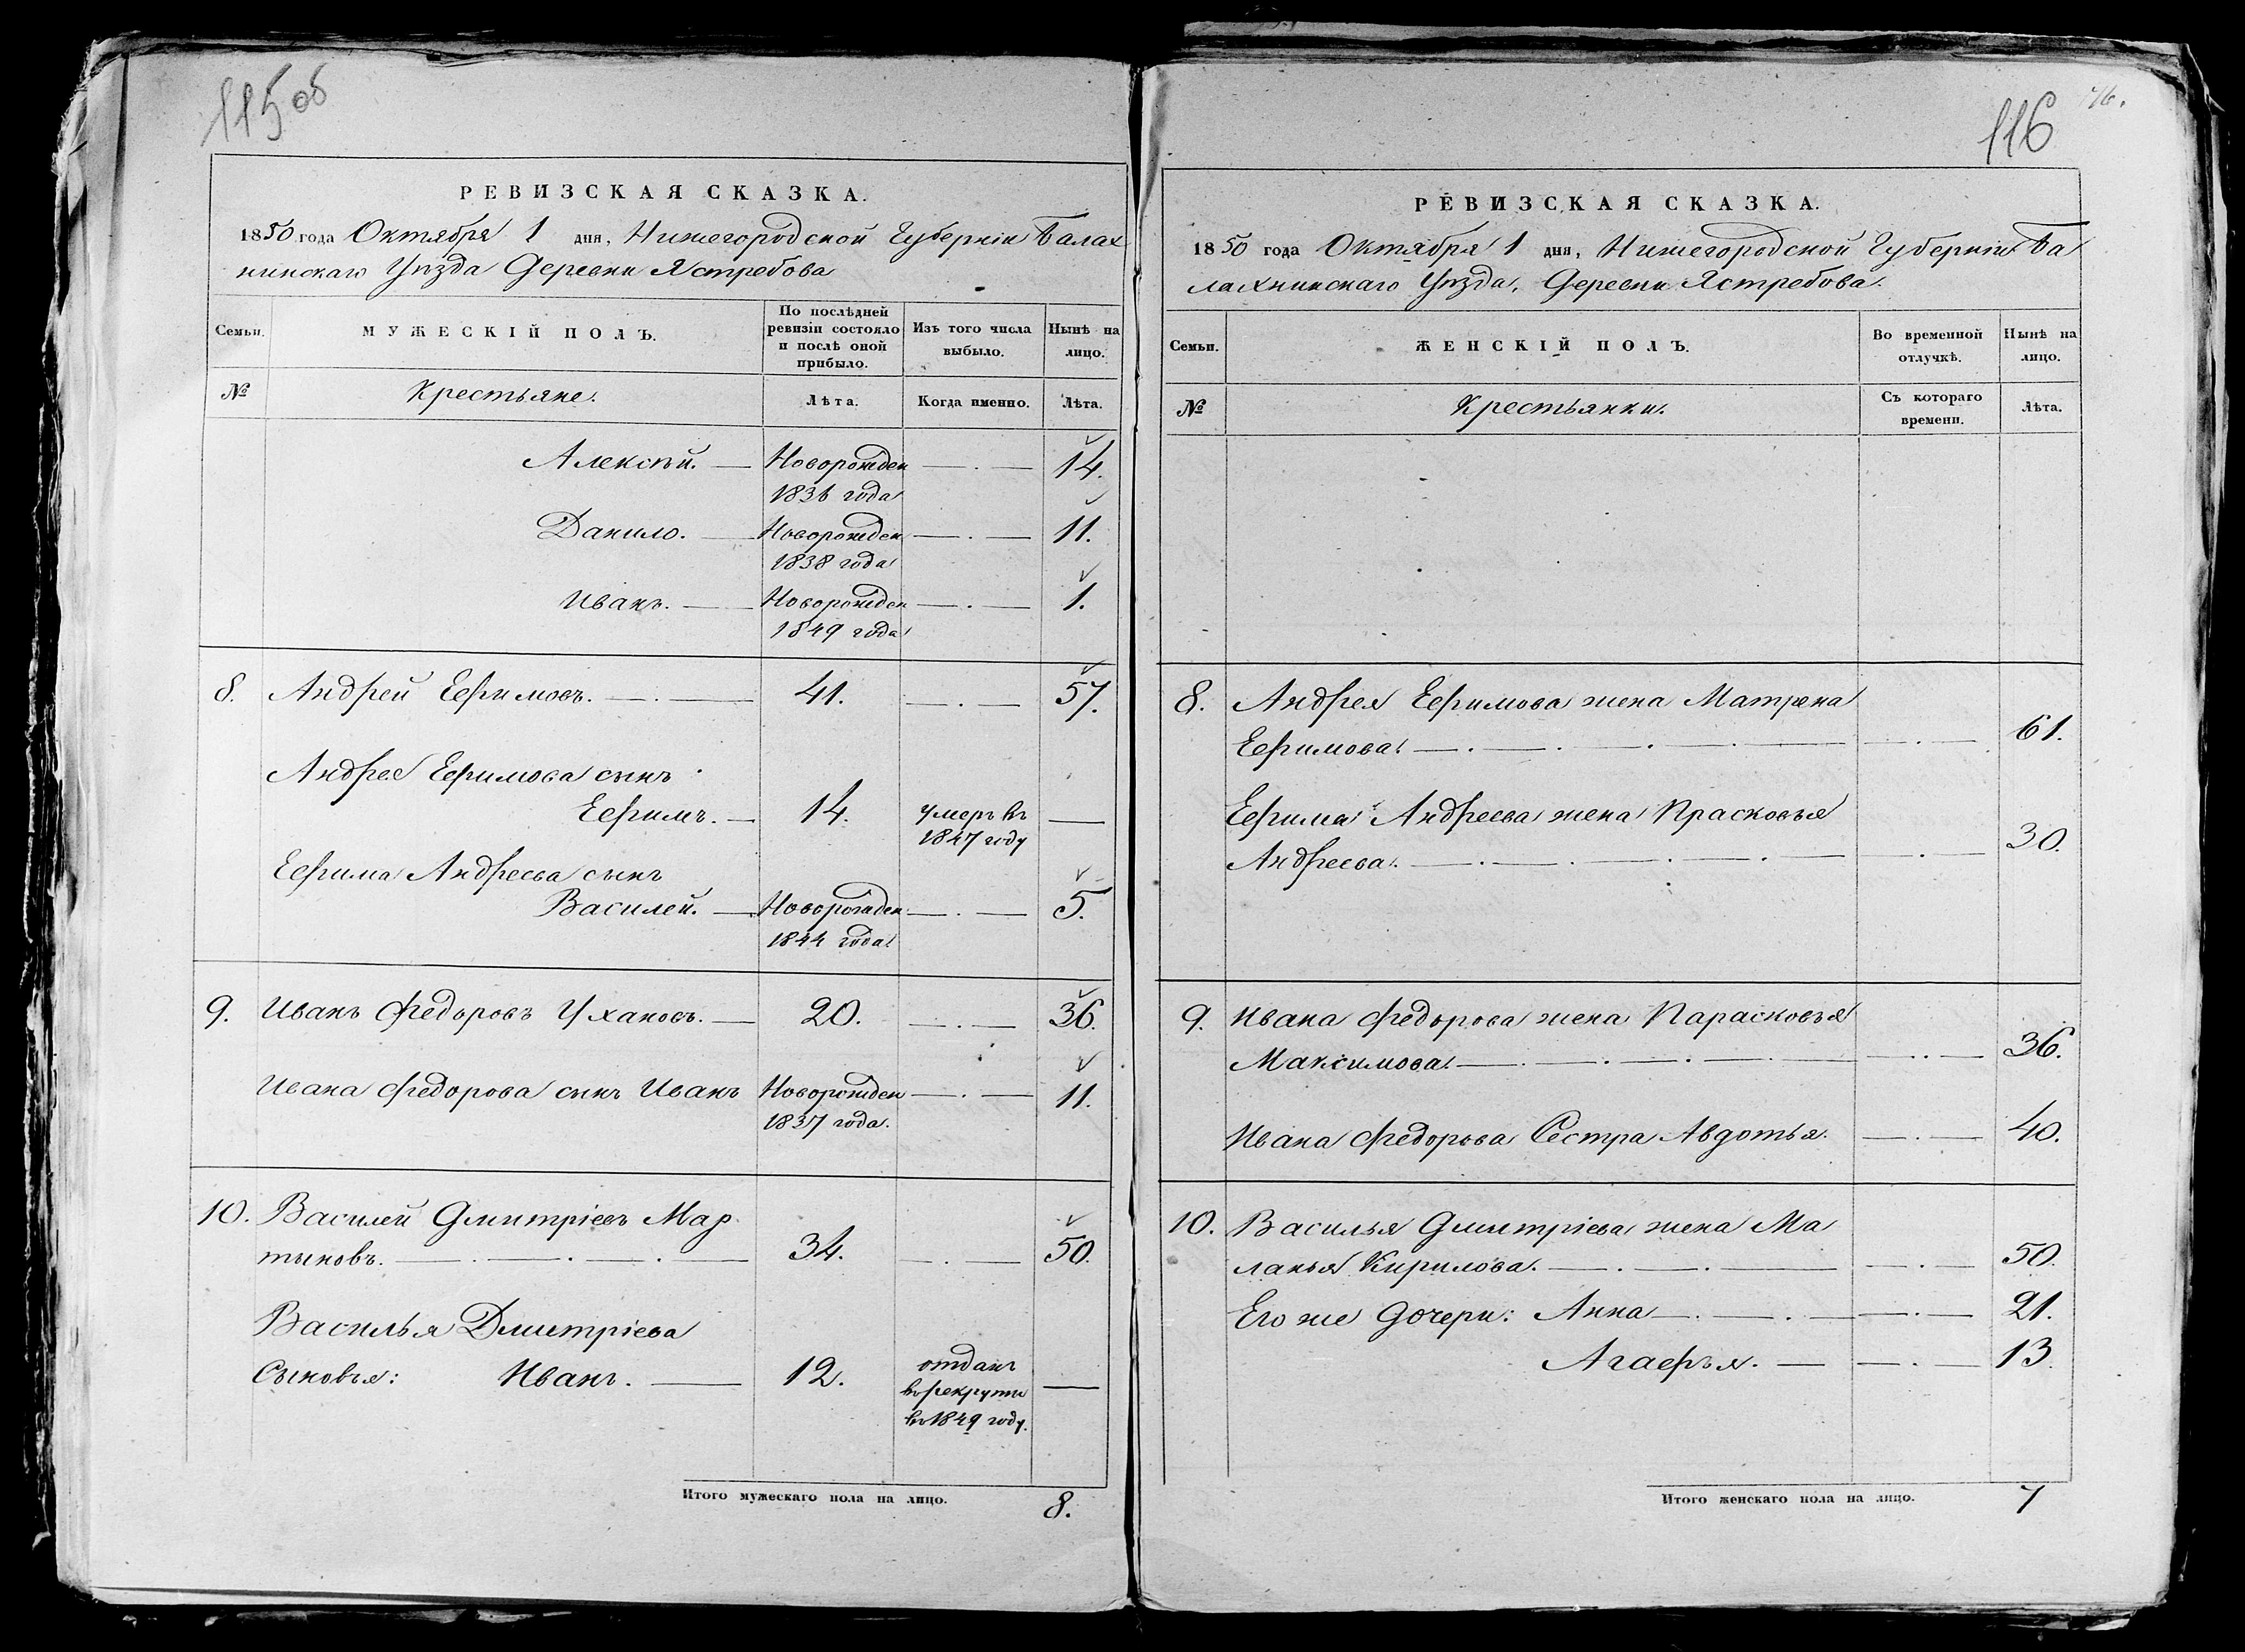 115 об
РЕВИЗСКАЯ СКАЗКА.
1850 года Октября 1 дня, Нижегородской Губерніи Балах
нинскаго Уѣзда Деревни Ястребова
Семьи.
МУЖЕСКІЙ ПОЛЪ.
По послѣдней ревизіи состояло и послѣ оной прибыло.
Изъ того числа выбыло.
Нынѣ на лицо.
№
Крестьяне.
Лѣта.
Когда именно.
Лѣта.
Алексѣй. — Новорожден — . — 14.
1836 года
Данило. — Новорожден — . — 11.
1838 года
Иванъ. — Новорожден — . — 1.
1849 года
8. Андрей Ефимовъ. — . — 41. — . — 57.
Андрея Ефимова сынъ
Ефимъ. — 14. умеръ въ —
1847 году
Ефима Андреева сынъ
Василей. — Новорожден — . — 5.
1844 года
9. Иванъ Федоровъ Ухановъ. — 20. — . — 36.
Ивана Федорова сынъ Иванъ Новорожден — . — 11.
1837 года.
10. Василей Дмитріевъ Мар
тыновъ. — . — . — . — 34. — . — 50.
Василья Дмитріева
Сыновья: Иванъ. — 12. отданъ —
въ рекруты
въ 1849 году.
Итого мужескаго пола на лицо. 8.
116
РЕВИЗСКАЯ СКАЗКА.
1850 года Октября 1 дня, Нижегородской Губерніи Ба
лахнинскаго Уѣзда, Деревни Ястребова.
Семьи.
ЖЕНСКІЙ ПОЛЪ.
Во временной отлучкѣ.
Нынѣ на лицо.
№
Крестьянки.
Съ котораго времени.
Лѣта.
8. Андрея Ефимова жена Матрена
Ефимова. — . — . — . — 61.
Ефима Андреева жена Прасковья
Андреева. — . — . — . — 30.
9. Ивана Федорова жена Парасковья
Максимова. — . — . — . — 36.
Ивана Федорова Сестра Авдотья. — . — 40.
10. Василья Дмитріева жена Ма
ланья Кирилова. — . — . — . — 50.
Его же Дочери: Анна — . — . — 21.
Агафья. — — . — 13.
Итого женскаго пола на лицо. 7